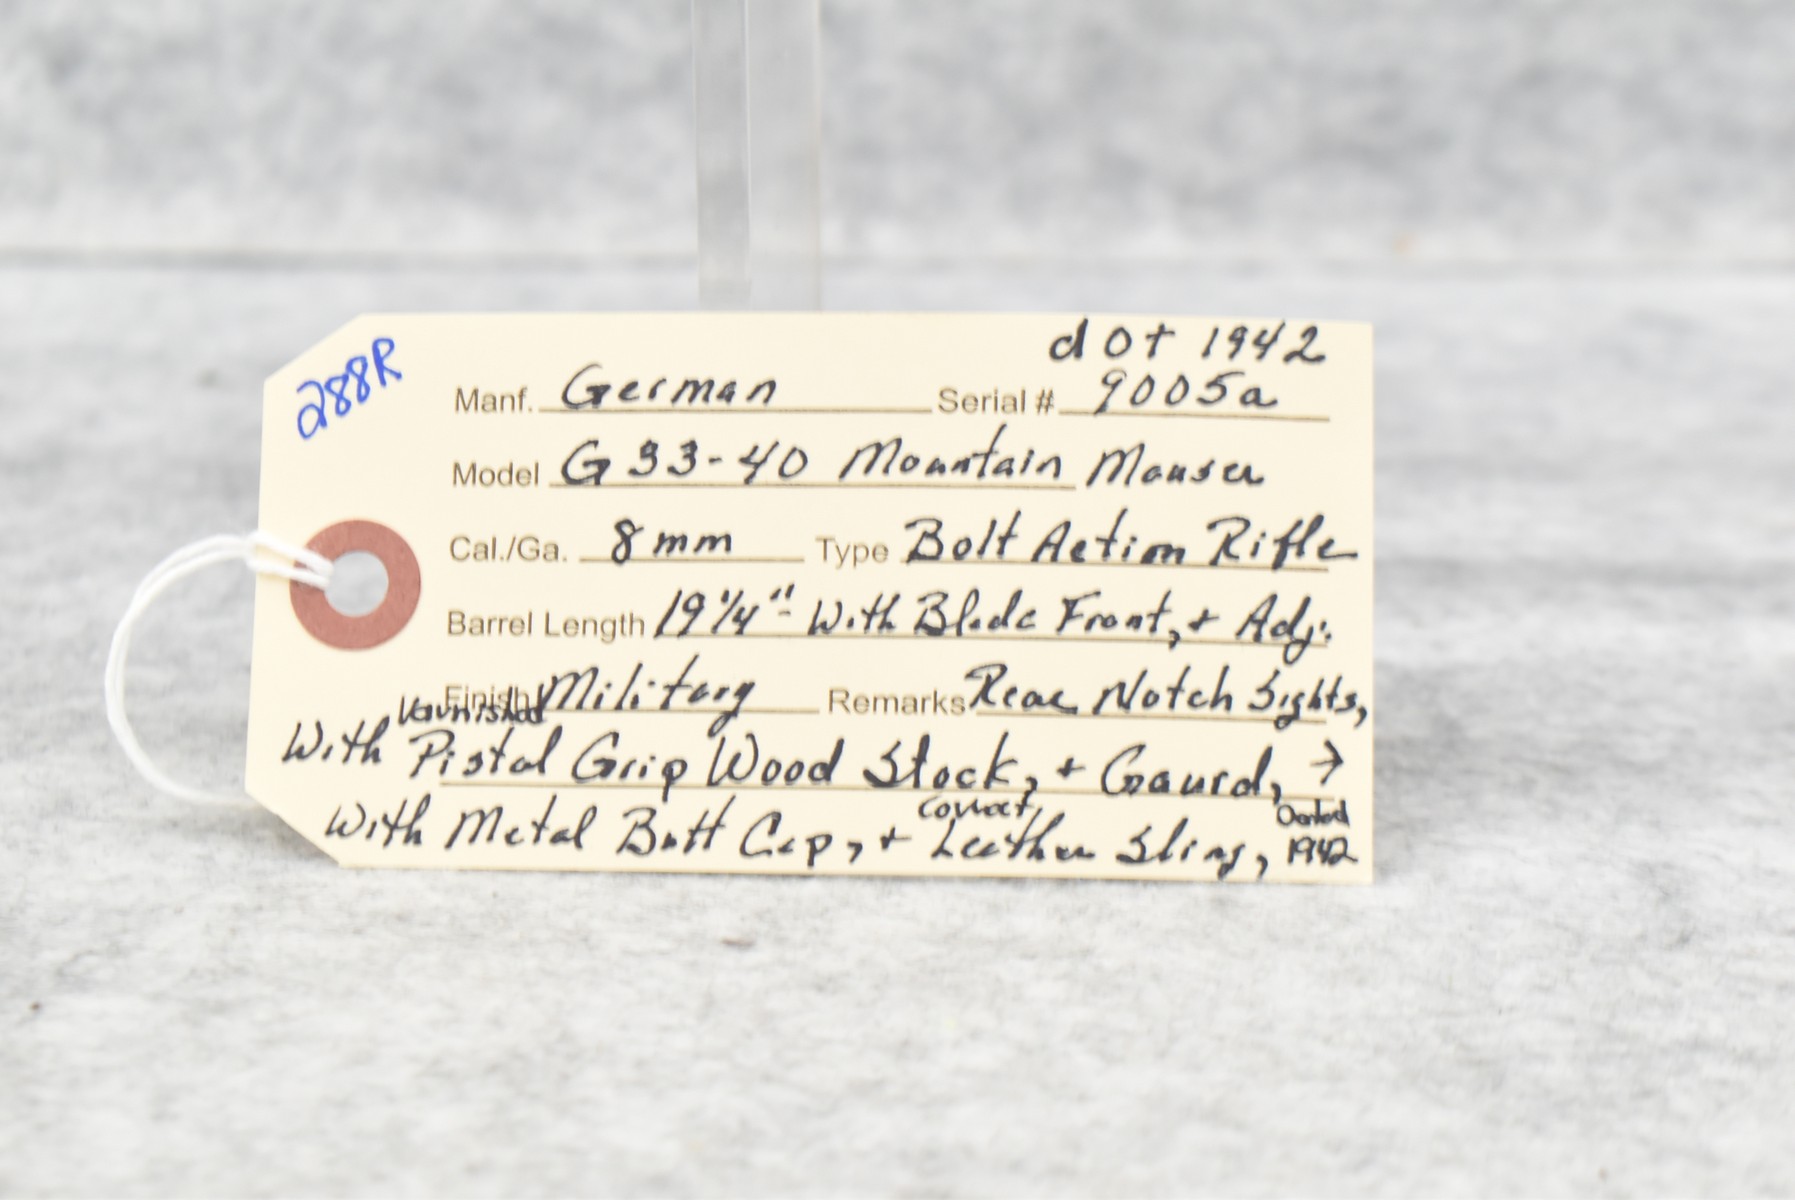 288R
dot 1942
Manf. German Serial # 9005a
Model G 33-40 Mountain Mauser
Cal./Ga. 8mm Type Bolt Action Rifle
Barrel Length 19 1/4" - With Blade Front, + Adj.
Finish Military Remarks Rear Notch Sights,
Varnished
With Pistol Grip Wood Stock, + Gaurd, →
correct, Dated
With Metal Butt Cap, + Leather Sling, 1942